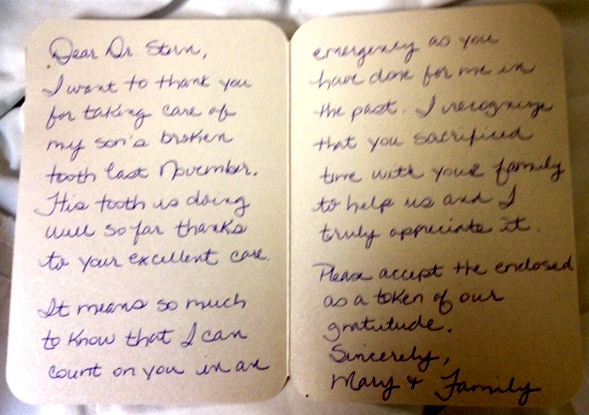 Dear Dr. Stern,
I want to thank you
for taking care of
my son's broken
tooth last November.
His tooth is doing
well so far thanks
to your excellent care.
It means so much
to know that I can
count on you in an
emergency as you
have done for me in
the past. I recognize
that you sacrificed
time with your family
to help us and I
truly appreciate it.
Please accept the enclosed
as a token of our
gratitude.
Sincerely,
Mary & Family